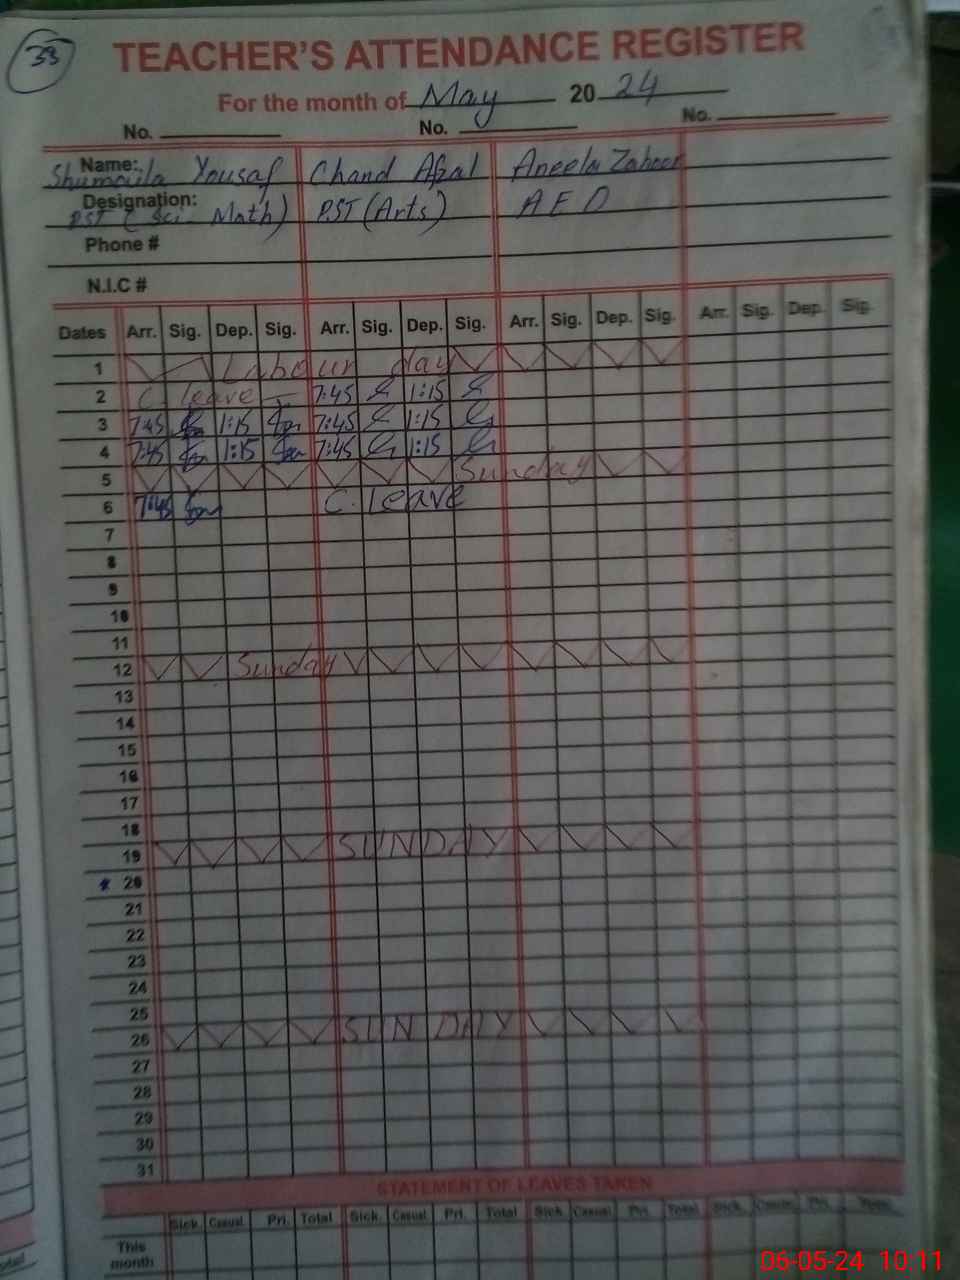 33
TEACHER'S ATTENDANCE REGISTER
For the month of May 20 24
No. No. No.
Name: Shumaila Yousaf Chand Afzal Aneela Zahoor
Designation: PST (Sci. Math) PST (Arts) AEO
Phone #
N.I.C #
Dates Arr. Sig. Dep. Sig. Arr. Sig. Dep. Sig. Arr. Sig. Dep. Sig. Arr. Sig. Dep. Sig.
1 Labour day
2 C. leave 7:45 1:15
3 7:45 1:15 7:45 1:15
4 7:45 1:15 7:45 1:15
5 Sunday
6 7:45 C. leave
7
8
9
10
11
12 Sunday
13
14
15
16
17
18
19 SUNDAY
* 20
21
22
23
24
25
26 SUNDAY
27
28
29
30
31
STATEMENT OF LEAVES TAKEN
Sick Casual Pri. Total Sick Casual Pri. Total Sick Casual Pri. Total Sick Casual Pri.
This
month
06-05-24 10:11